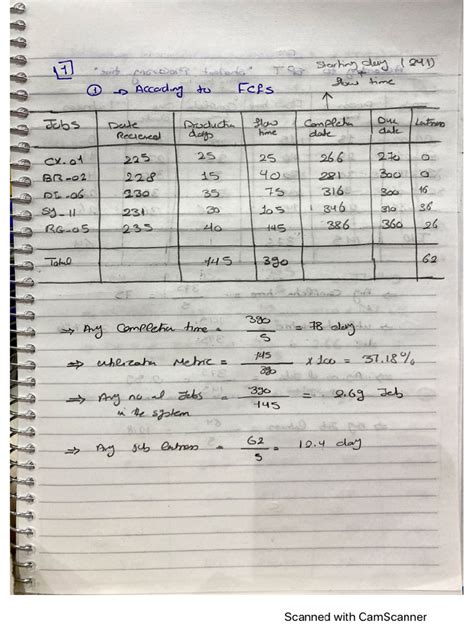 Starting day (241)
+
7 flow time
① → According to FCFS
Jobs Date Recieved Production days flow time Completion date Due date Latness
CX-01 225 25 25 266 270 0
BR-02 228 15 40 281 300 0
DE-06 230 35 75 316 300 16
SY-11 231 30 105 346 310 36
RG-05 235 40 145 386 360 26
Total 145 390 62
⇒ Avg Completion time = 390/5 = 78 day
⇒ utilization Metric = 145/390 × 100 = 37.18%
⇒ Avg no of Jobs in the system = 390/145 = 2.69 Job
⇒ Avg Job Latness = 62/5 = 12.4 day
Scanned with CamScanner